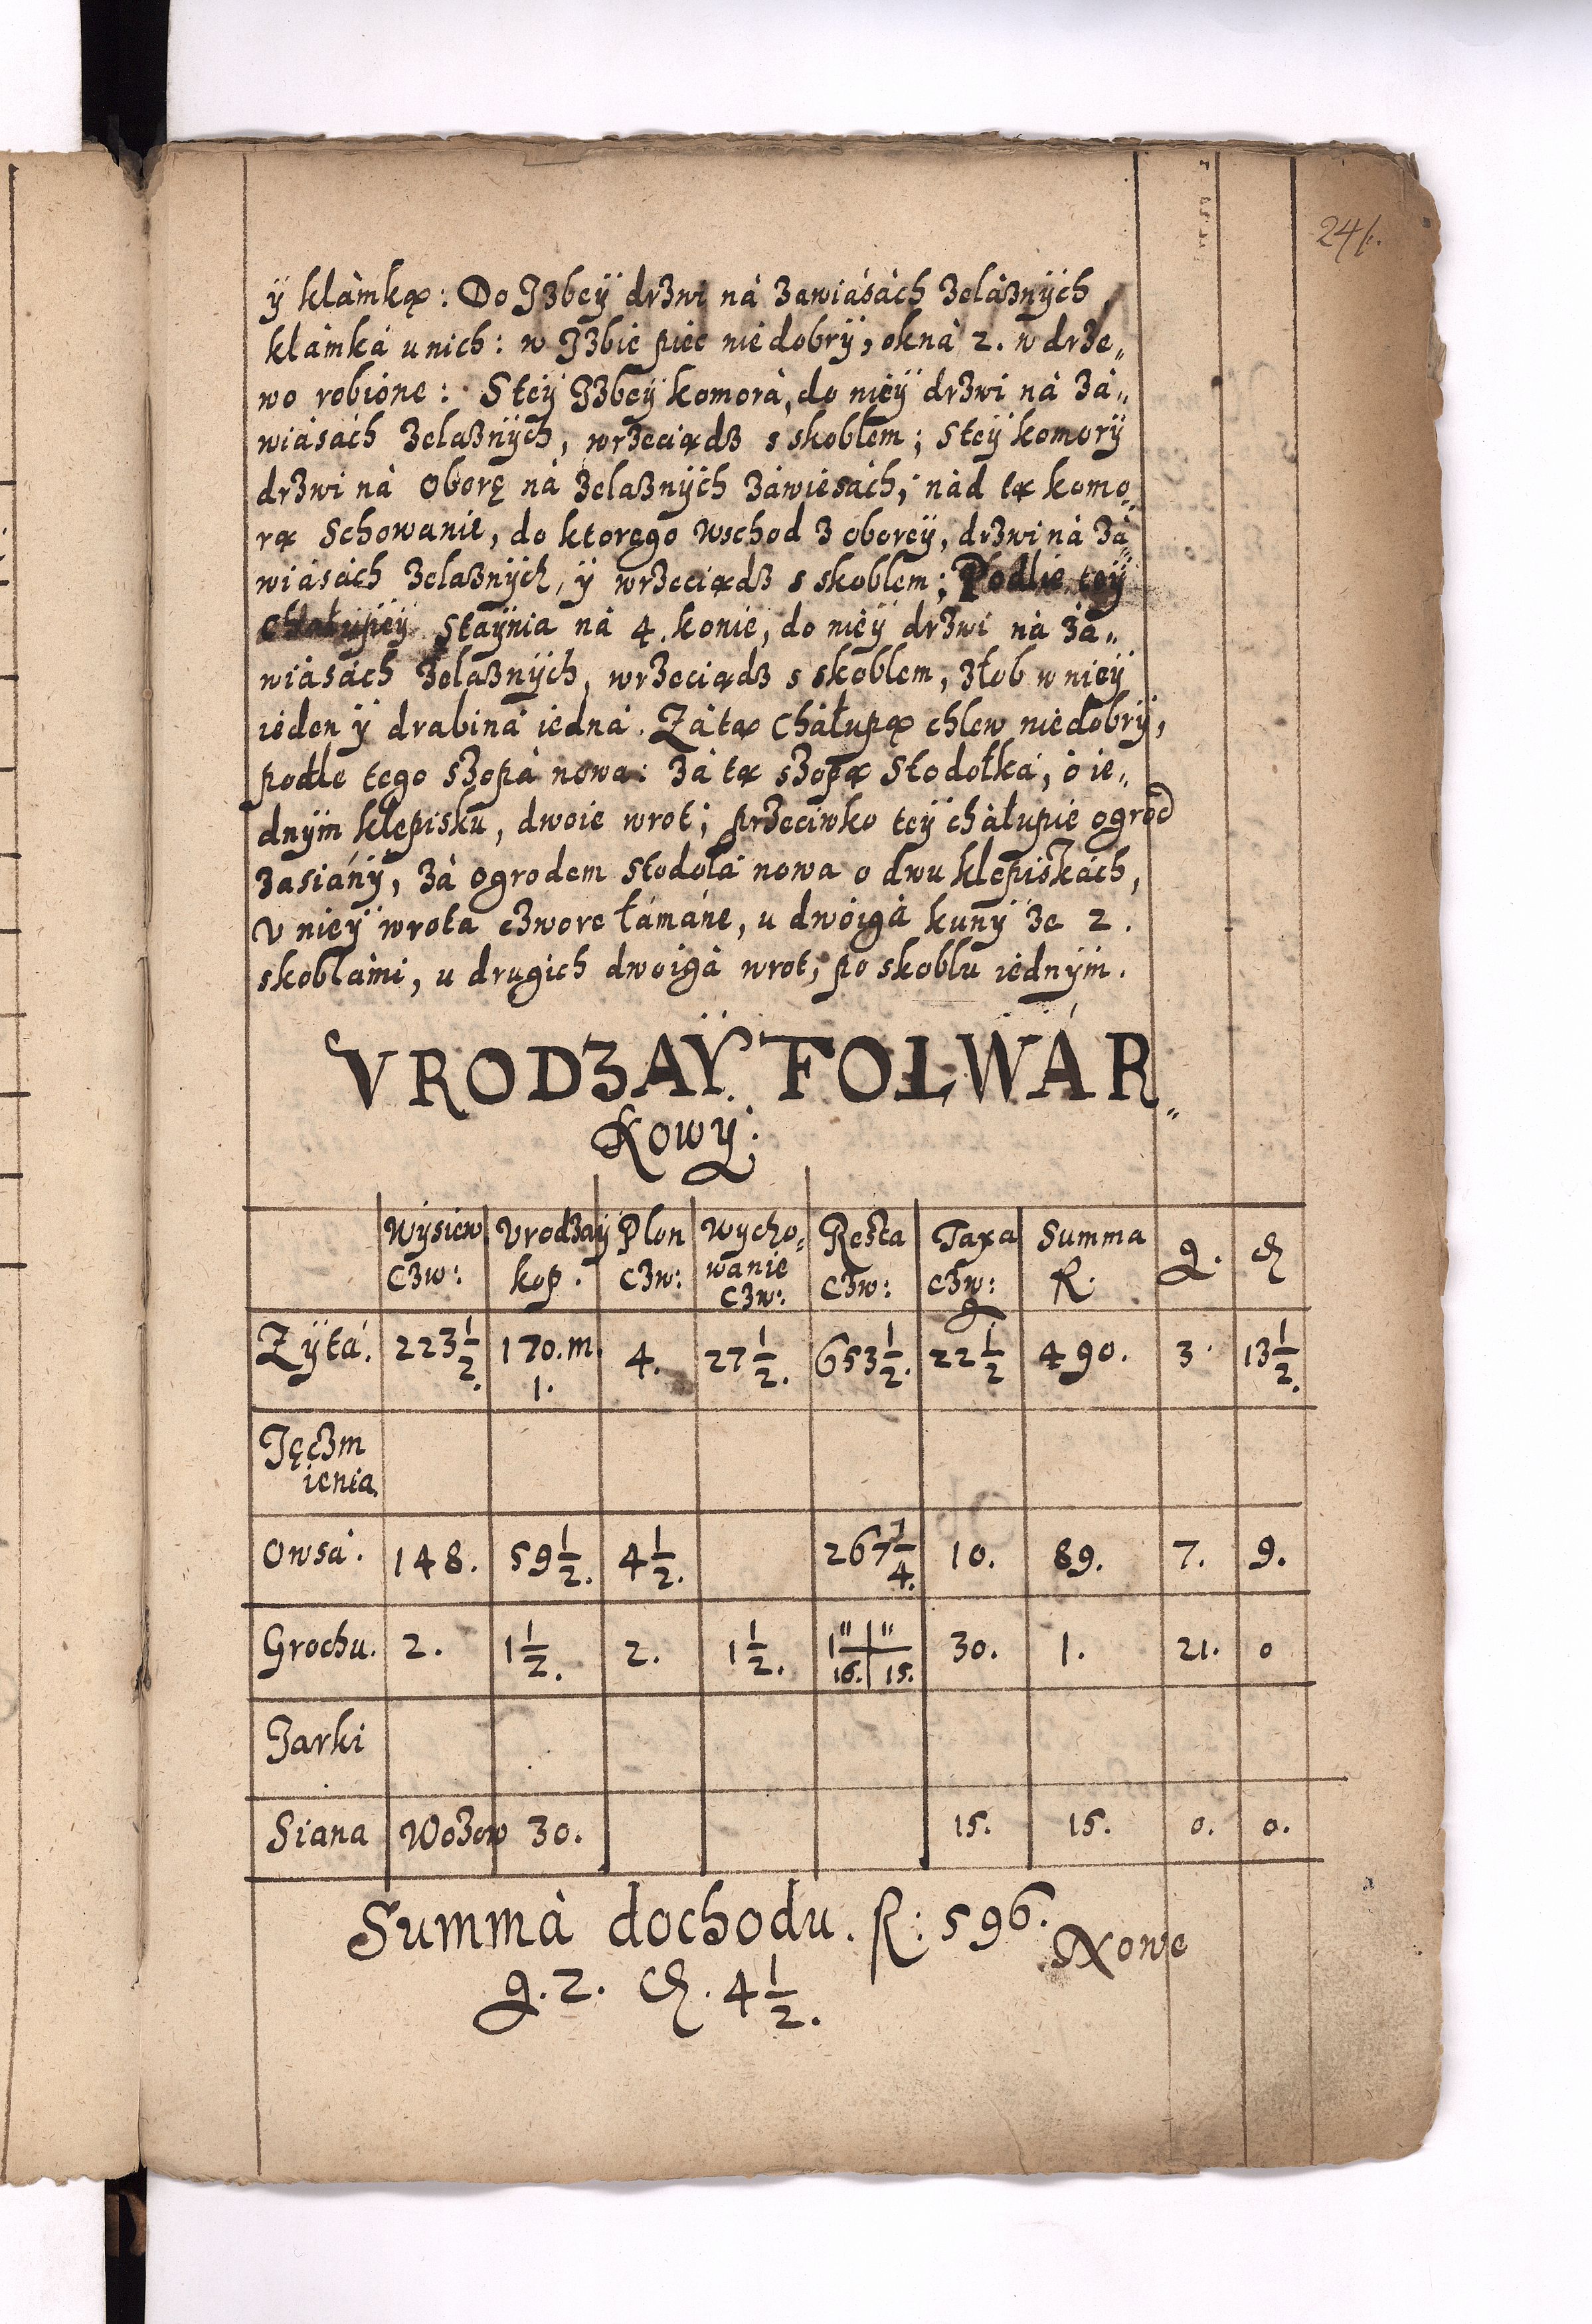 241.
ÿ klàmką: Do Jzbeÿ drzwi nà zawiásàch żeláznÿch,
klàmká u nich: w Jzbie piec niedobrÿ, okna 2. w drze„
wo robione: S teÿ Jzbeÿ komorà, do nieÿ drzwi nà zà„
wiásách żelaznÿch, wrzeciądz s skoblem; S teÿ komorÿ
drzwi nà Oborę nà żelaznÿch záwiesách, nàd tą komo„
rą Schowanie, do ktorego wschod z oboreÿ, drzwi nà zà„
wiásách żelaznÿch, ÿ wrzeciądz s skoblem; Podlie teÿ
Chałupieÿ Staÿnia nà 4. konie, do nieÿ drzwi nà zà„
wiásách żelaznÿch, wrzeciądz s skoblem, złob w nieÿ
ieden ÿ drabiná iedná. Zà tą Chàłupą chlew niedobrÿ,
podle tego szopà nowa: zà tą szopą Stodołká, o ie„
dnÿm klepisku, dwoie wrot; przeciwko teÿ chàłupie ogrod
zasiánÿ, zà ogrodem Stodołá nowa o dwu klepiskách,
v nieÿ wrota czwore łámáne, u dwoigà kunÿ ze 2.
skoblàmi, u drugich dwoigà wrot, po skoblu iednÿm.
VRODZAŸ FOLWÁR„
Kowÿ:
Wÿsiew czw: Vrodzaÿ kop. Plon czw: Wycho„wanie czw: Reszta czw: Taxa czw: g Summa R. g. d
Zÿtá. 223 1/2. 170. m. 1. 4. 27 1/2. 653 1/2. 22 1/2 490. 3. 13 1/2.
Jęczm
ienia
Owsá. 148. 59 1/2. 4 1/2. 267 1/4. 10. 89. 7. 9.
Grochu. 2. 1 1/2. 2. 1 1/2. 30. 1. 21. 0
Jarki
Siana Wozow 30. 15. 15. 0. 0.
Summà dochodu. R: 596.
g. 2. d. 4 1/2.
Nowe